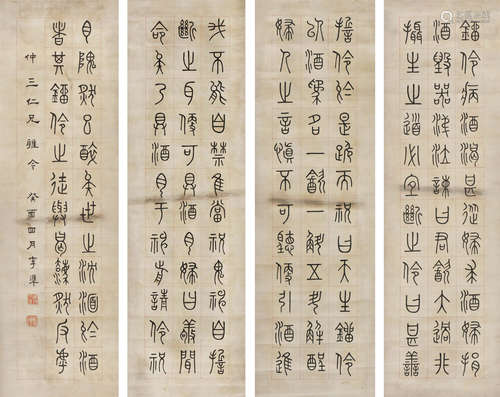 鎦伶病酒渴甚從婦求酒婦捐
酒毀器涕泣諫曰君飲太過非
攝生之道必宜斷之伶曰甚善
我不能自禁惟當祝鬼神自誓
斷之耳便可具酒肉婦曰聞
命矣乃具酒肉于神前請伶祝
誓伶於是跪而祝曰天生鎦伶
以酒為名一飲一斛五斗解酲
婦人之言慎不可聽便引酒進
肉隗然已醉矣世之沈湎於酒
者其鎦伶之徒與
仲三仁兄雅令 癸酉四月李準